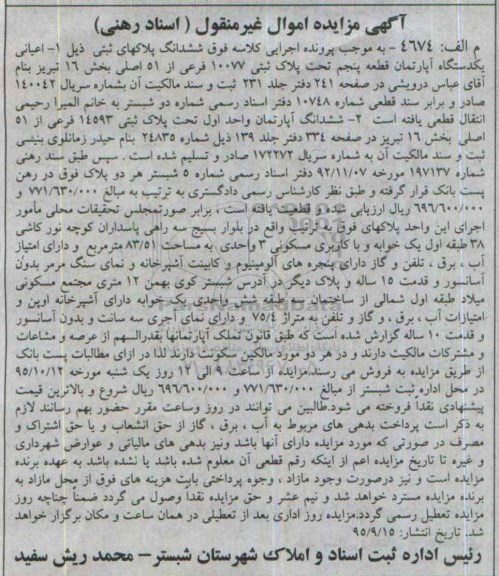 آگهی مزایده اموال غیرمنقول ( اسناد رهنی )
م الف: ۴۶۷۴ - به موجب پرونده اجرایی کلاسه فوق ششدانگ پلاکهای ثبتی ذیل ۱- اعیانی
یکدستگاه آپارتمان قطعه پنجم تحت پلاک ثبتی ۱۰۰۷۷ فرعی از ۵۱ اصلی بخش ۱۶ تبریز بنام
آقای عباس درویشی در صفحه ۲۴۱ دفتر جلد ۲۳۱ ثبت و سند مالکیت آن بشماره سریال ۱۴۰۰۴۲
صادر و برابر سند قطعی شماره ۱۰۷۴۸ دفتر اسناد رسمی شماره دو شبستر به خانم المیرا رحیمی
انتقال قطعی یافته است ۲- ششدانگ آپارتمان واحد اول تحت پلاک ثبتی ۱۴۵۹۳ فرعی از ۵۱
اصلی بخش ۱۶ تبریز در صفحه ۳۳۴ دفتر جلد ۱۳۹ ذیل شماره ۲۴۸۳۵ بنام حیدر زمانلوی بنیسی
ثبت و سند مالکیت آن به شماره سریال ۱۷۲۲۷۲ صادر و تسلیم شده است . سپس طبق سند رهنی
شماره ۱۹۷۱۳۷ مورخه ۹۲/۱۱/۰۷ دفتر اسناد رسمی شماره ۵ شبستر هر دو پلاک فوق در رهن
پست بانک قرار گرفته و طبق نظر کارشناس رسمی دادگستری به ترتیب به مبالغ ۷۷۱/۶۳۰/۰۰۰ و
۶۹۶/۶۰۰/۰۰۰ ریال ارزیابی شده و قطعیت یافته است ، برابر صورتمجلس تحقیقات محلی مأمور
اجرای این واحد پلاکهای فوق به ترتیب واقع در بلوار بسیج سه راهی پاسداران کوچه نور کاشی
۳۸ طبقه اول یک خوابه و با کاربری مسکونی ۳ واحدی به مساحت ۸۳/۵۱ مترمربع و دارای امتیاز
آب . برق ، تلفن و گاز دارای پنجره های آلومینیوم و کابینت آشپرخانه و نمای سنگ مرمر بدون
آسانسور و قدمت ۱۵ ساله و پلاک دیگر در آدرس شبستر کوی بهمن ۱۲ متری مجتمع مسکونی
میلاد طبقه اول شمالی از ساختمان سه طبقه شش واحدی یک خوابه دارای آشپرخانه اوپن و
امتیازات آب ، برق ، و گاز و تلفن به متراژ ۷۵/۴ و دارای نمای آجری سه سانت و بدون آسانسور
و قدمت ۱۰ ساله گزارش شده است که طبق قانون تملک آپارتمانها بقدرالسهم از عرصه و مشاعات
و مشترکات مالکیت دارند و در هر دو مورد مالکین سکونت دارند لذا در ازای مطالبات پست بانک
از طریق مزایده به فروش می رسند.مزایده از ساعت ۹ الی ۱۲ روز یک شنبه مورخه ۹۵/۱۰/۱۲
در محل اداره ثبت شبستر از مبالغ ۷۷۱/۶۳۰/۰۰۰ و ۶۹۶/۶۰۰/۰۰۰ ریال شروع و بالاترین قیمت
پیشنهادی نقداً فروخته می شود.طالبین می توانند در روز وساعت مقرر حضور بهم رسانند لازم
به ذکر است پرداخت بدهی های مربوط به آب ، برق ، گاز از حق انشعاب و یا حق اشتراک و
مصرف در صورتی که مورد مزایده دارای آنها باشد ونیز بدهی های مالیاتی و عوارض شهرداری
و غیره تا تاریخ مزایده اعم از اینکه رقم قطعی آن معلوم شده باشد یا نشده باشد به عهده برنده
مزایده است و نیز درصورت وجود مازاد ، وجوه پرداختی بابت هزینه های فوق از محل مازاد به
برنده مزایده مسترد خواهد شد و نیم عشر و حق مزایده نقدا وصول می گردد ضمناً چناچه روز
مزایده تعطیل رسمی گردد.مزایده روز اداری بعد از تعطیلی در همان ساعت و مکان برگزار خواهد
شد. تاریخ انتشار: ۹۵/۹/۱۵
رئیس اداره ثبت اسناد و املاک شهرستان شبستر - محمد ریش سفید